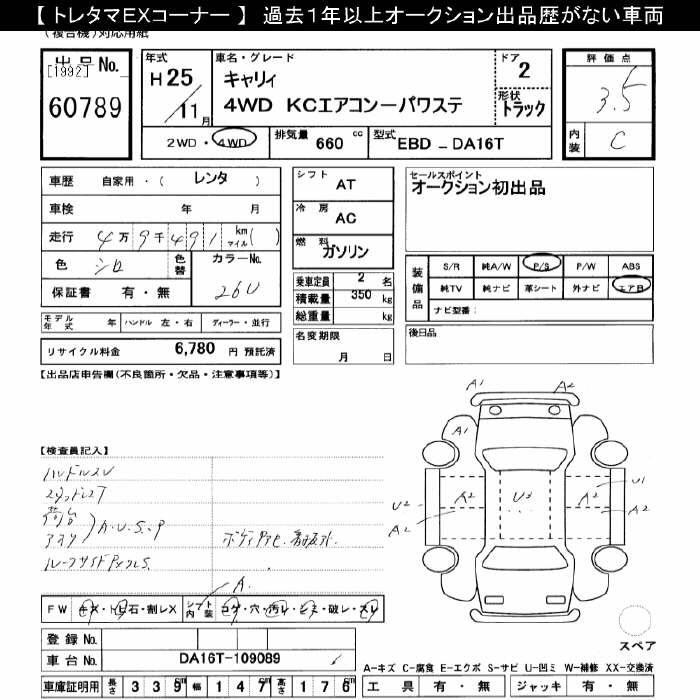 【 トレタマEXコーナー 】 過去1年以上オークション出品歴がない車両
(複合機)対応用紙
出品 No.
[1992]
60789
年式
H 25
11 月
車名・グレード
キャリィ
4WD KCエアコンーパワステ
ドア
2
形状
トラック
評価点
3.5
内装
C
2WD ・ 4WD
排気量 660 cc
型式 EBD - DA16T
車歴 自家用・( レンタ )
車検 年 月
走行 4 万 9 千 4 9 1 km マイル ( )
色 シロ
色替
カラーNo.
26U
保証書 有・無
モデル年式 年 ハンドル 左・右 ディーラー・並行
リサイクル料金 6,780 円 預託済
シフト AT
冷房 AC
燃料 ガソリン
乗車定員 2 名
積載量 350 kg
総重量 kg
名変期限
月 日
セールスポイント
オークション初出品
装備品
S/R 純A/W P/S P/W ABS
純TV 純ナビ 革シート 外ナビ エアB
ナビ型番:
後日品
【出品店申告欄(不良箇所・欠品・注意事項等)】
【検査員記入】
ハンドルスレ
荷台
A.U.S.P
A1
A2
A1
A2
U3
A2
U1
U2
A2
A2
A.
FW キズ・トビ石・割レX
シフト
内装
コゲ・穴・汚レ・シミ・破レ・スレ
登録 No.
車台 No. DA16T-109089
車庫証明用 長さ 3 3 9 cm 幅 1 4 7 cm 高さ 1 7 6 cm
スペア
A-キズ C-腐食 E-エクボ S-サビ U-凹ミ W-補修 XX-交換済
工具 有・無 ジャッキ 有・無